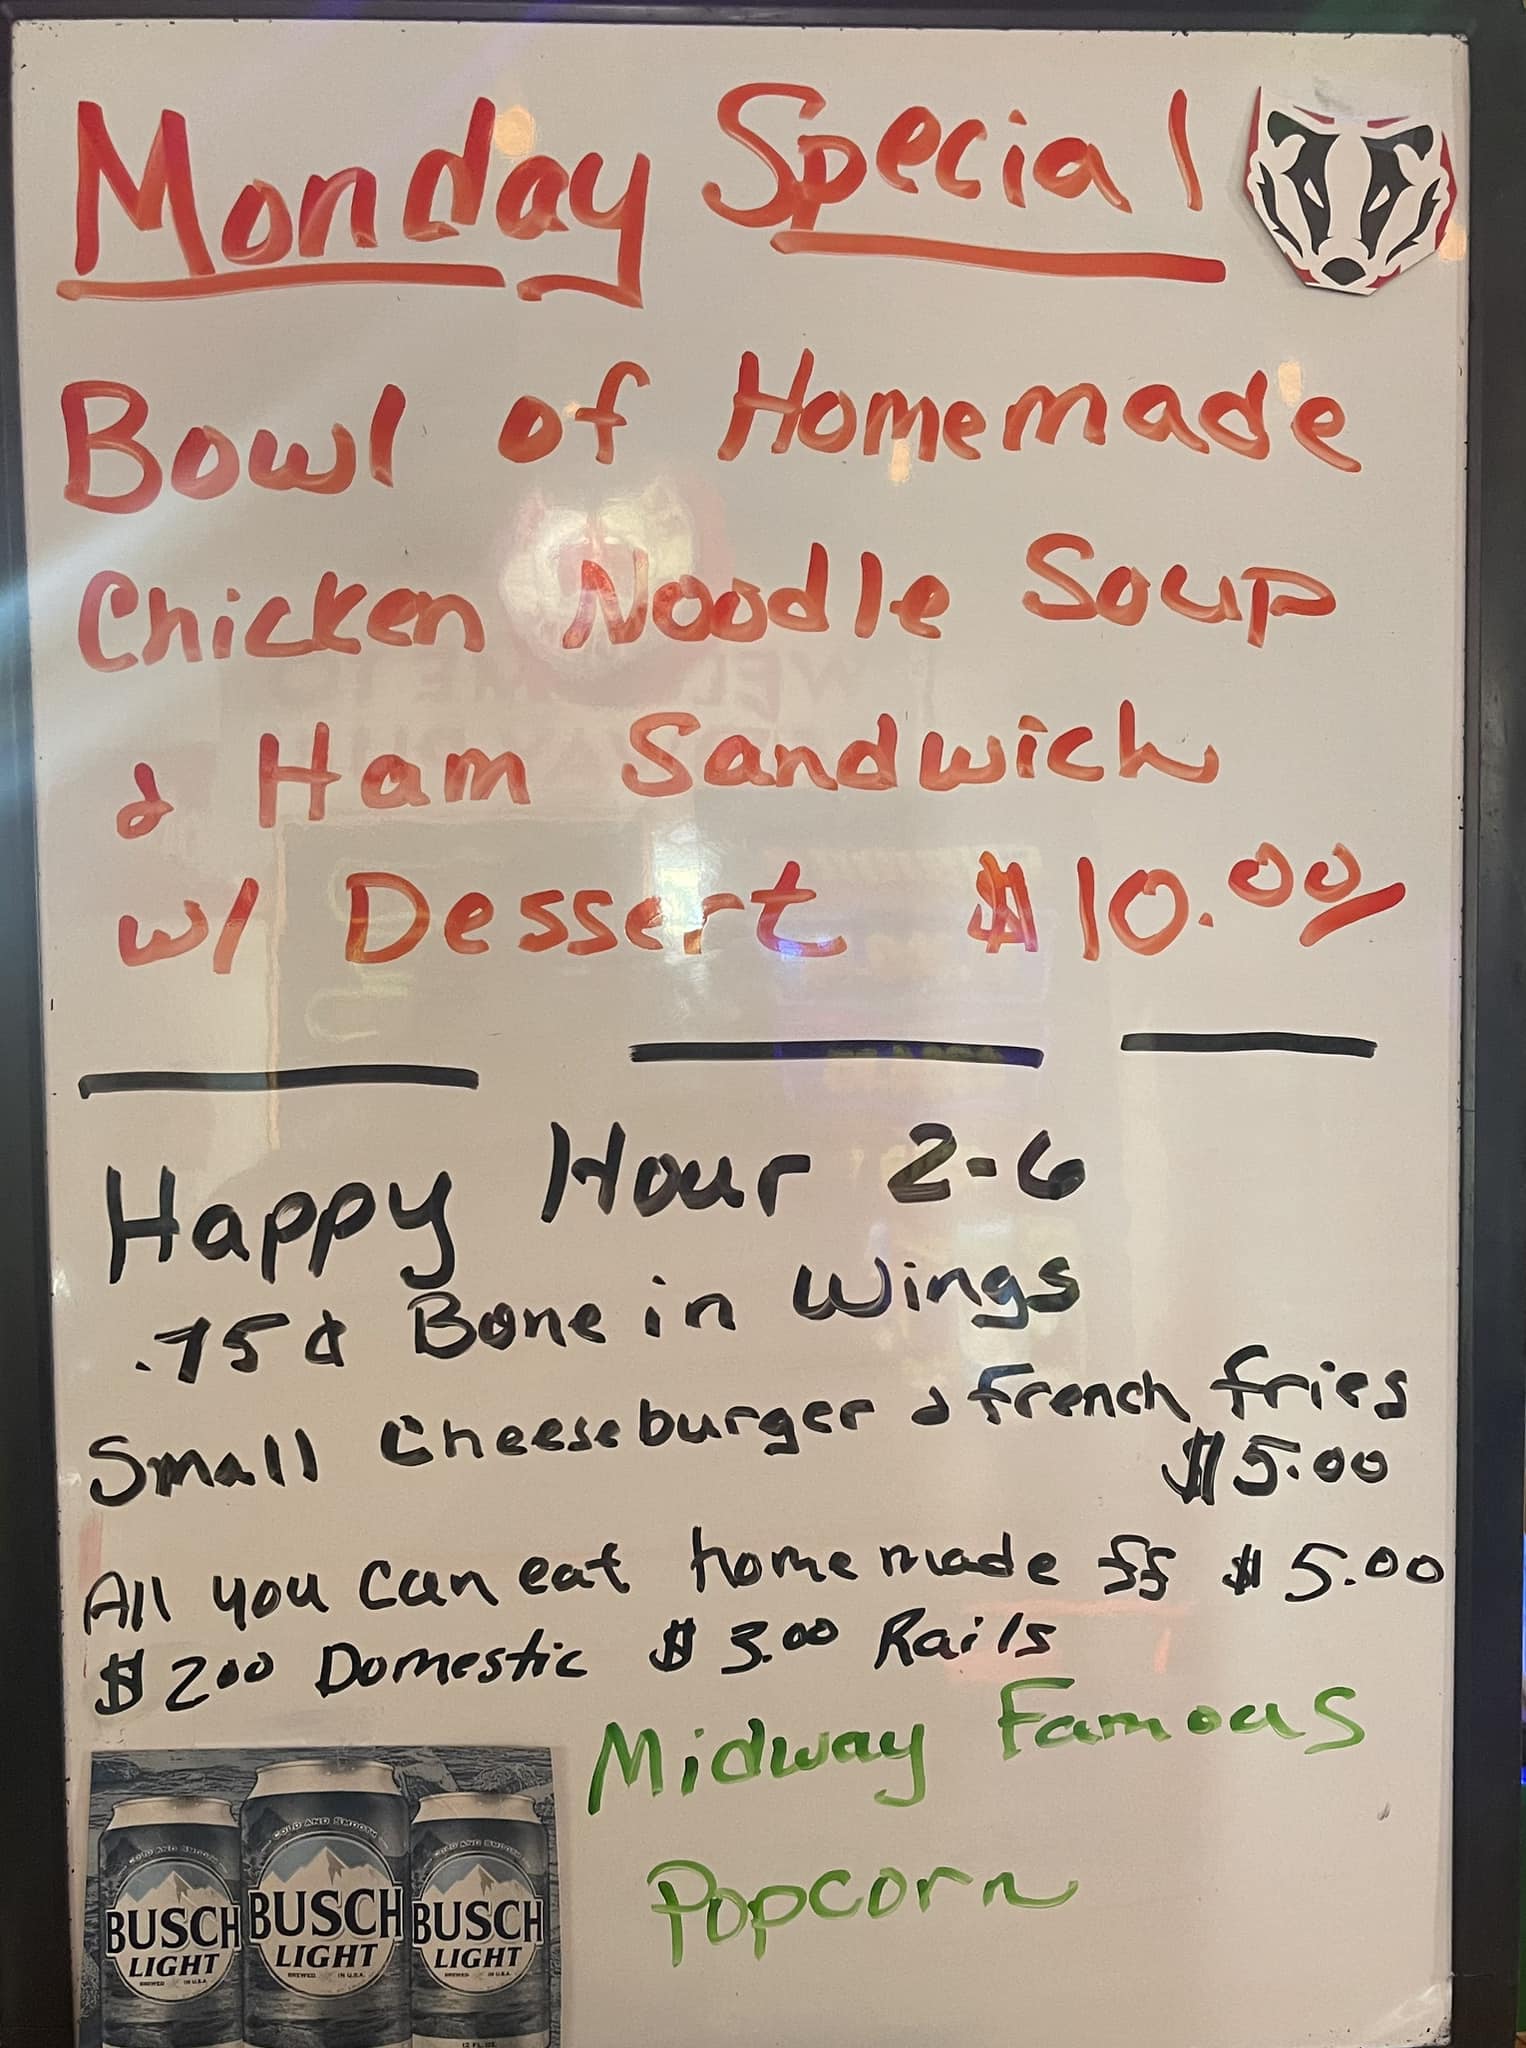 Monday Special
Bowl of Homemade
Chicken Noodle Soup
& Ham Sandwich
w/ Dessert $10.00
Happy Hour 2-6
.75¢ Bone in Wings
Small Cheeseburger & French fries
$5.00
All you can eat homemade ff $5.00
$2.00 Domestic $3.00 Rails
Midway Famous
Popcorn
COLD AND SMOOTH
BUSCH
LIGHT
BREWED IN U.S.A.
COLD AND SMOOTH
BUSCH
LIGHT
BREWED IN U.S.A.
COLD AND SMOOTH
BUSCH
LIGHT
BREWED IN U.S.A.
12 FL. OZ.